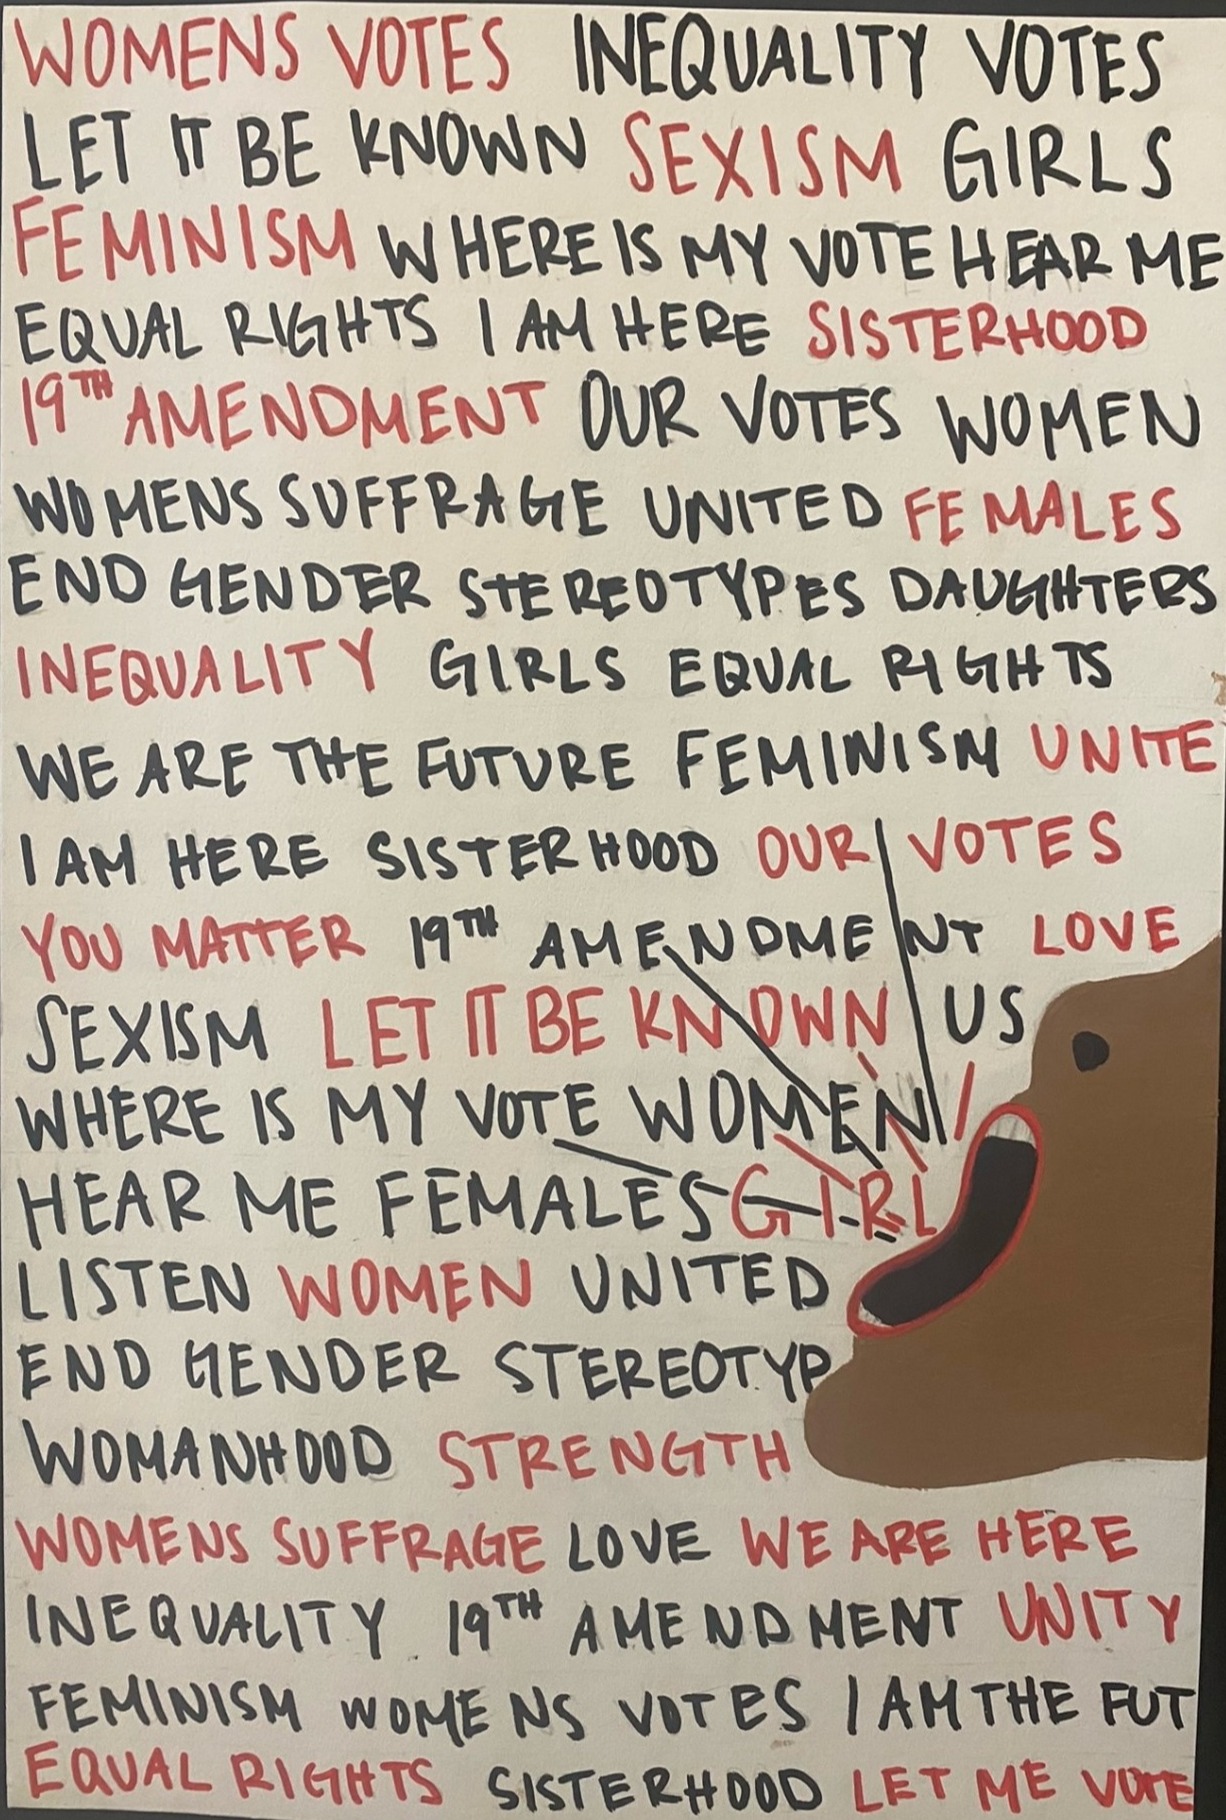 WOMENS VOTES INEQUALITY VOTES
LET IT BE KNOWN SEXISM GIRLS
FEMINISM WHERE IS MY VOTE HEAR ME
EQUAL RIGHTS I AM HERE SISTERHOOD
19TH AMENDMENT OUR VOTES WOMEN
WOMENS SUFFRAGE UNITED FEMALES
END GENDER STEREOTYPES DAUGHTERS
INEQUALITY GIRLS EQUAL RIGHTS
WE ARE THE FUTURE FEMINISM UNITE
I AM HERE SISTERHOOD OUR VOTES
YOU MATTER 19TH AMENDMENT LOVE
SEXISM LET IT BE KNOWN US
WHERE IS MY VOTE WOMEN
HEAR ME FEMALES GIRL
LISTEN WOMEN UNITED
END GENDER STEREOTYP
WOMANHOOD STRENGTH
WOMENS SUFFRAGE LOVE WE ARE HERE
INEQUALITY 19TH AMENDMENT UNITY
FEMINISM WOMENS VOTES I AM THE FUT
EQUAL RIGHTS SISTERHOOD LET ME VOTE